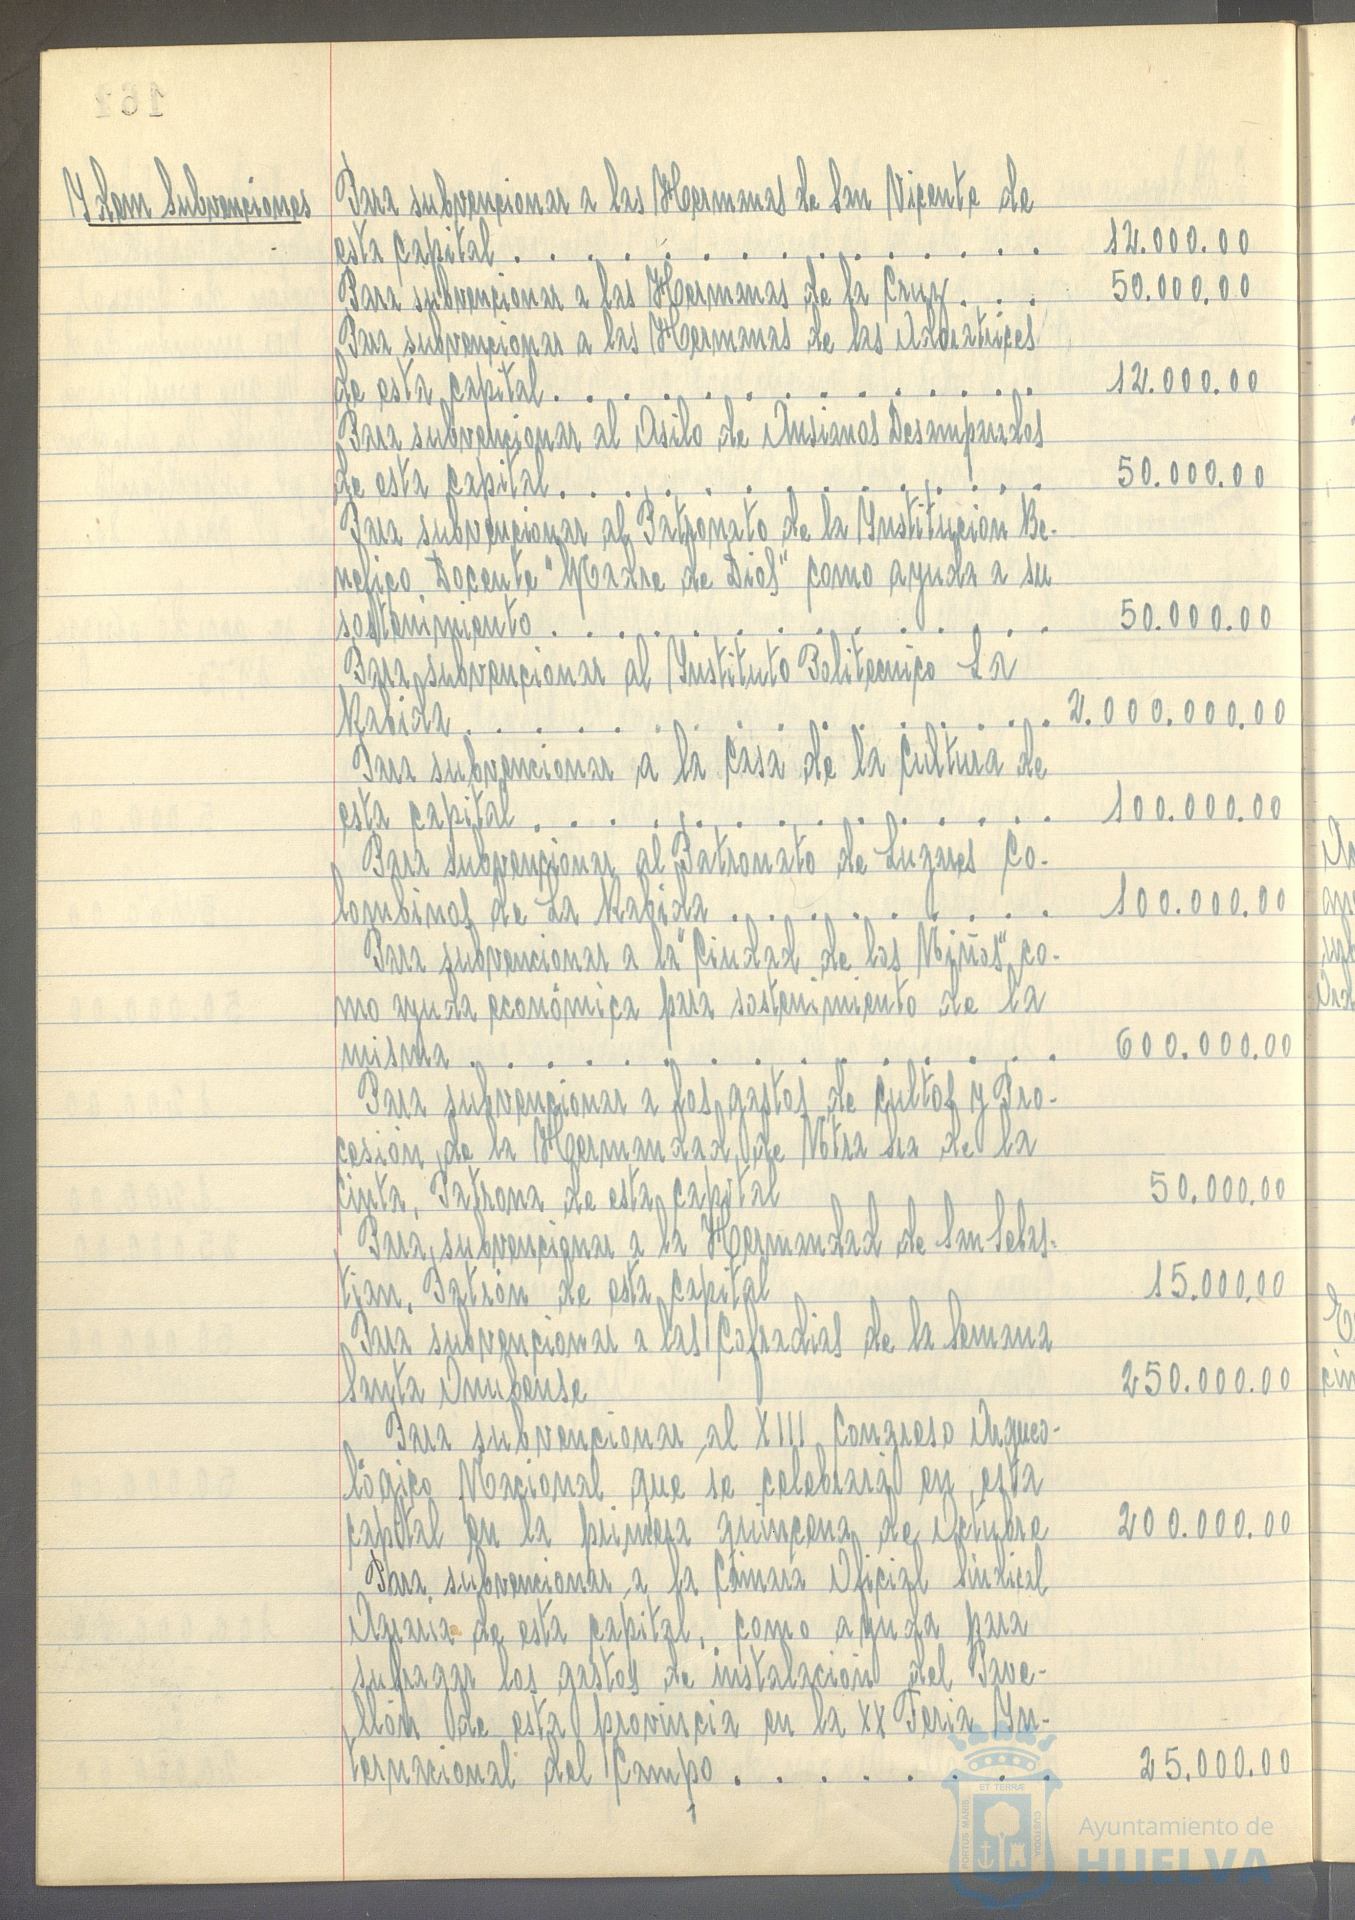 Ydem Subvenciones
Para subvencionar a las Hermanas de San Vicente de
esta capital . . . . . . . . . . . . . . 12.000.00
Para subvencionar a las Hermanas de la Cruz . . . 50.000.00
Para subvencionar a las Hermanas de las Adoratrices
de esta capital . . . . . . . . . . . . . 12.000.00
Para subvencionar al Asilo de Ansianos Desamparados
de esta capital . . . . . . . . . . . . . 50.000.00
Para subvencionar al Patronato de la Ynstitución Be-
nefico Docente "Madre de Dios" como ayuda a su
sostenimiento . . . . . . . . . . . . . 50.000.00
Para subvencionar al Ynstituto Politecnico La
Rabida . . . . . . . . . . . . . . . 2.000.000.00
Para subvencionar a la Casa de la Cultura de
esta capital . . . . . . . . . . . . . . 100.000.00
Para subvencionar al Patronato de Lugares Co-
lombinos de La Rabida . . . . . . . . . 100.000.00
Para subvencionar a la "Ciudad de los Niños", co-
mo ayuda económica para sostenimiento de la
misma . . . . . . . . . . . . . . . 600.000.00
Para subvencionar a los gastos de cultos y Pro-
cesión de la Hermandad de Ntra Sra de la
Cinta, Patrona de esta capital 50.000.00
Para subvencionar a la Hermandad de San Sebas-
tian, Patrón de esta capital 15.000.00
Para subvencionar a las Cofradias de la Semana
Santa Onubense 250.000.00
Para subvencionar al XIII Congreso Arqueo-
lógico Nacional que se celebrará en esta
capital en la primera quincena de Octubre 200.000.00
Para subvencionar a la Cámara Oficial Sindical
Agraria de esta capital, como ayuda para
sufragar los gastos de instalación del Pave-
llón de esta provincia en la XX Feria Yn-
ternacional del Campo . . . . . . . . . 25.000.00
ET TERRÆ
PORTUS MARIS
CUSTODIA
Ayuntamiento de
HUELVA